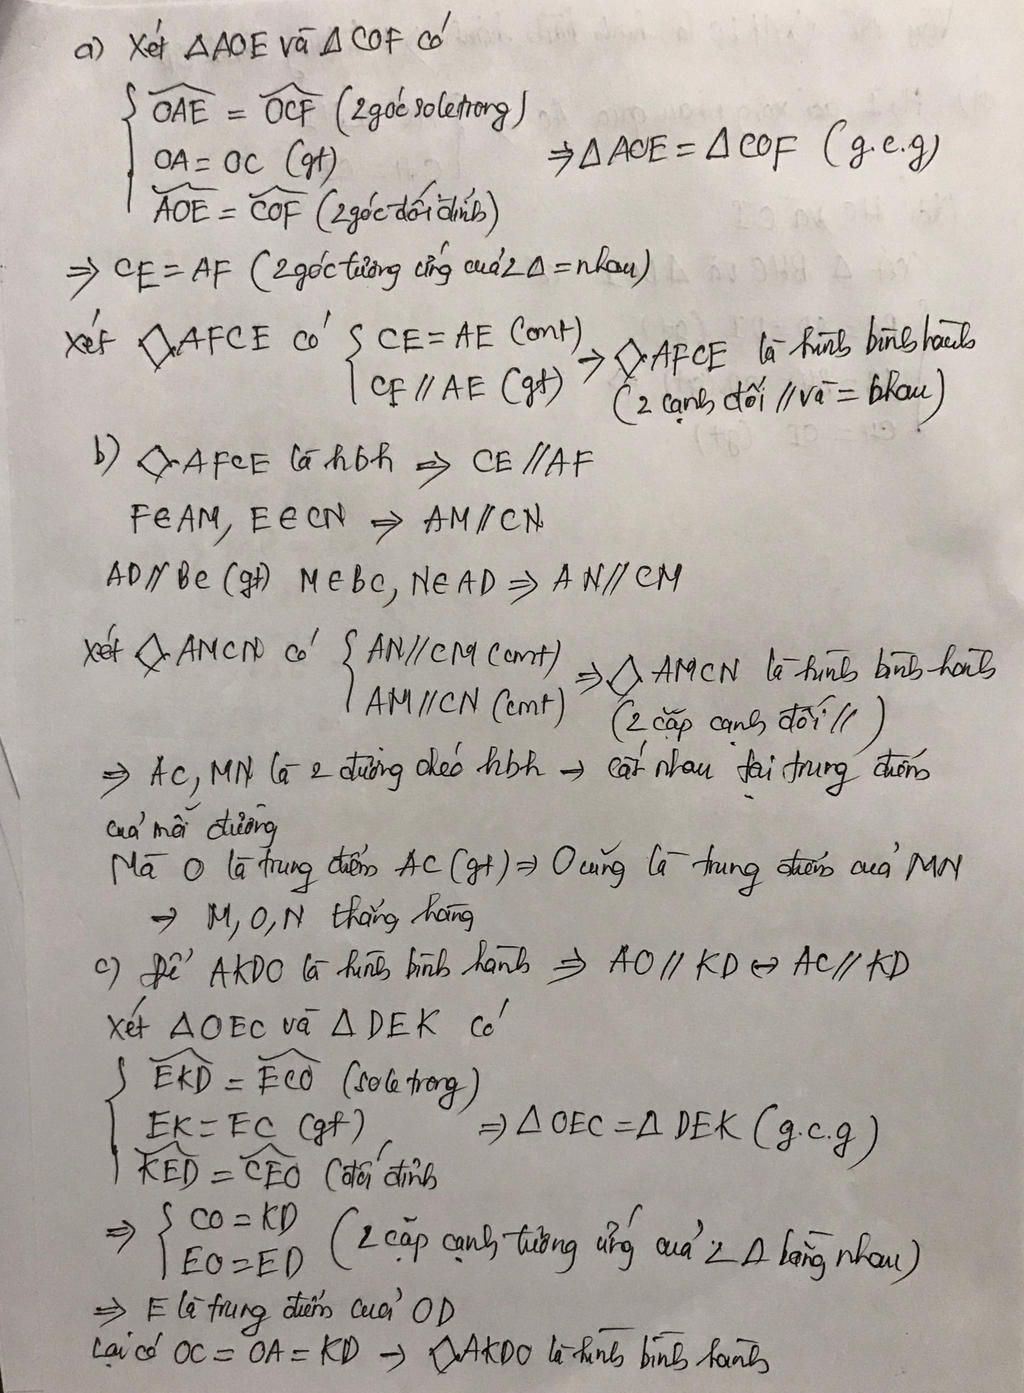 a) Xét ΔAOE và ΔCOF có
{ \widehat{OAE} = \widehat{OCF} (2 góc so le trong)
OA = OC (gt) ⇒ ΔAOE = ΔCOF (g.c.g)
\widehat{AOE} = \widehat{COF} (2 góc đối đỉnh)
⇒ CE = AF (2 góc tương ứng của 2 Δ = nhau)
Xét ◇AFCE có { CE = AE (cmt) → ◇AFCE là hình bình hành
CF // AE (gt) (2 cạnh đối // và = nhau)
b) ◇AFCE là hbh ⇒ CE // AF
F∈AM, E∈CN ⇒ AM // CN
AD // BC (gt) M∈BC, N∈AD ⇒ AN // CM
Xét ◇AMCN có { AN // CM (cmt) ⇒ ◇AMCN là hình bình hành
AM // CN (cmt) (2 cặp cạnh đối //)
⇒ AC, MN là 2 đường chéo hbh → cắt nhau tại trung điểm
của mỗi đường
Mà O là trung điểm AC (gt) ⇒ O cũng là trung điểm của MN
→ M, O, N thẳng hàng
c) Để AKDO là hình bình hành ⇒ AO // KD ↔ AC // KD
Xét ΔOEC và ΔDEK có
{ \widehat{EKD} = \widehat{ECO} (so le trong)
EK = EC (gt) ⇒ ΔOEC = ΔDEK (g.c.g)
\widehat{KED} = \widehat{CEO} (đối đỉnh
⇒ { CO = KD (2 cặp cạnh tương ứng của 2 Δ bằng nhau)
EO = ED
⇒ E là trung điểm của OD
Lại có OC = OA = KD → ◇AKDO là hình bình hành